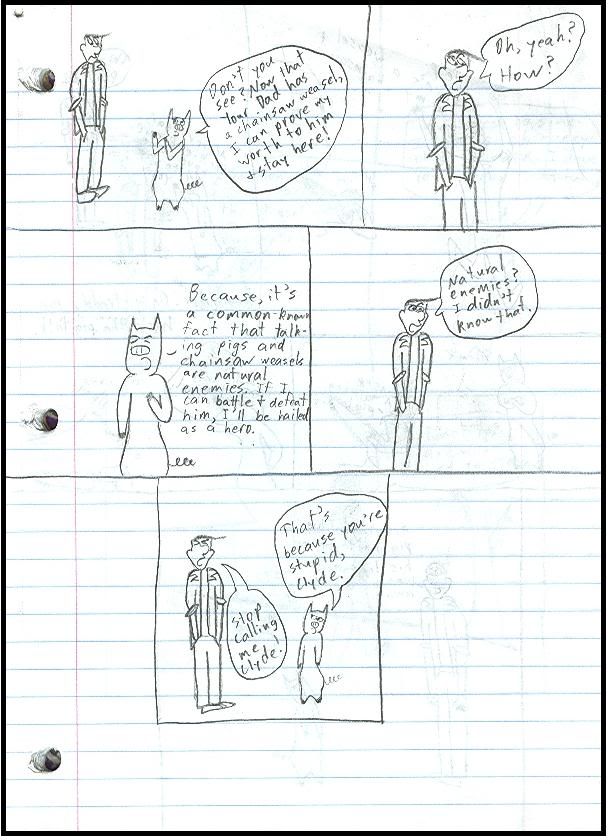 Don't you
see? Now that
your Dad has
a chainsaw weasel,
I can prove my
worth to him
+ stay here!
Oh, yeah?
How?
Because, it's
a common-known
fact that talk-
ing pigs and
chainsaw weasels
are natural
enemies. If I
can battle + defeat
him, I'll be hailed
as a hero.
Natural
enemies?
I didn't
know that.
That's
because you're
stupid,
Clyde.
Stop
calling
me
Clyde!